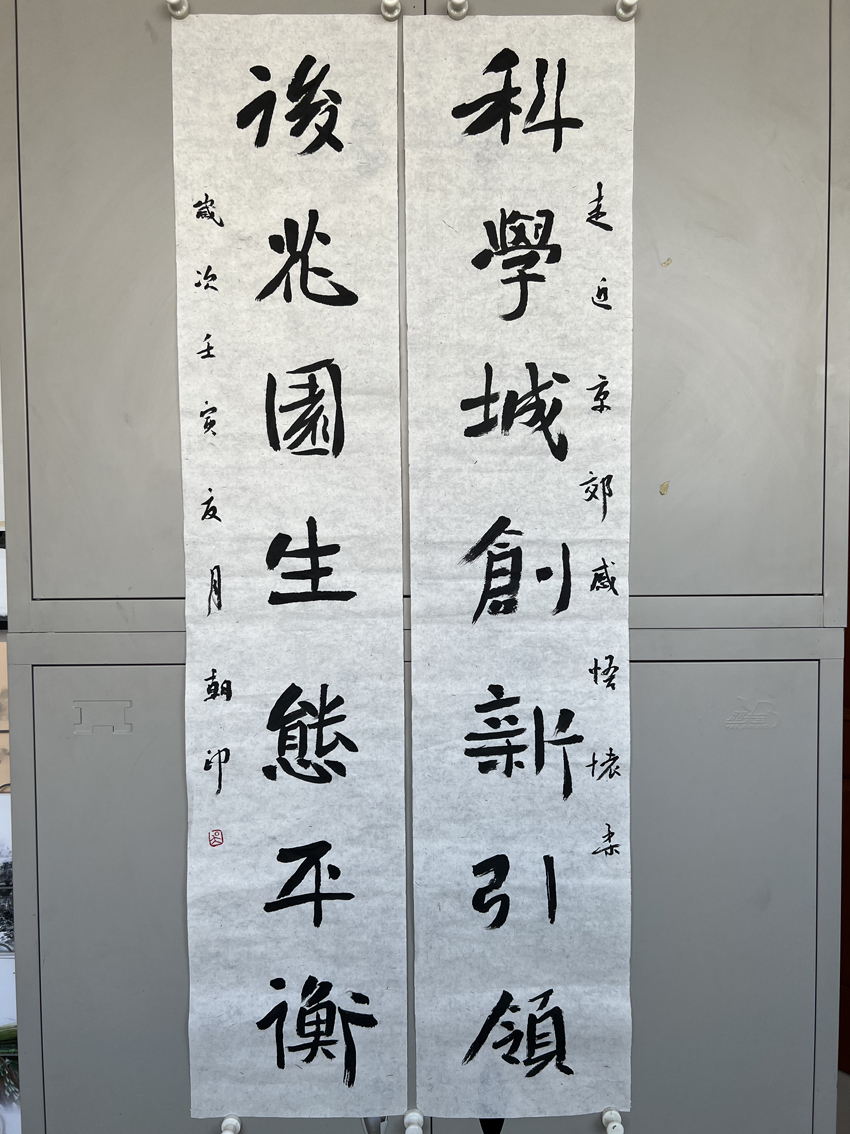 走近京郊感悟懷柔
科學城創新引領
後花園生態平衡
歲次壬寅夏月朝印